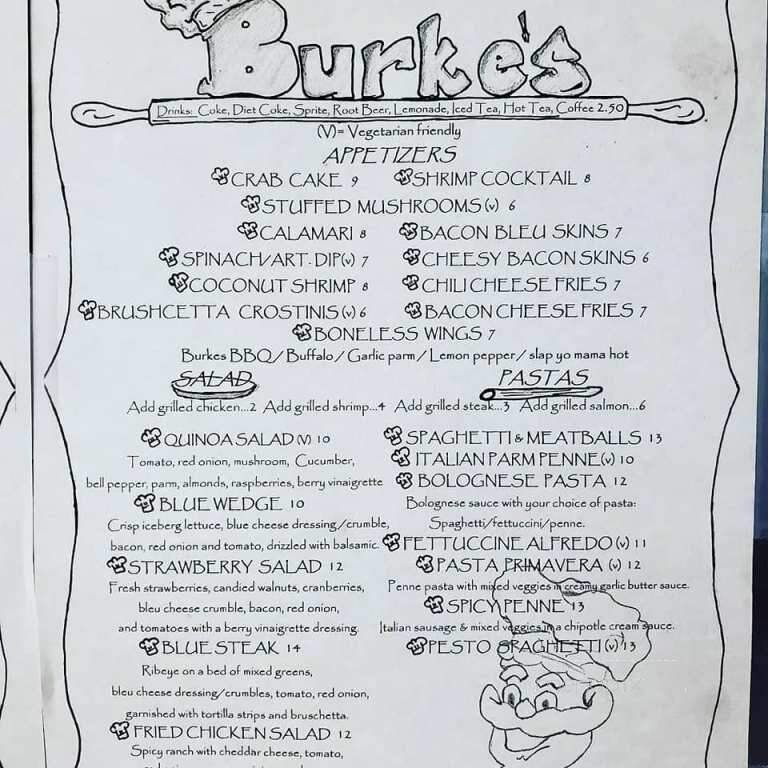 Burke's
Drinks: Coke, Diet Coke, Sprite, Root Beer, Lemonade, Iced Tea, Hot Tea, Coffee 2.50
(V)= Vegetarian friendly
APPETIZERS
CRAB CAKE 9 SHRIMP COCKTAIL 8
STUFFED MUSHROOMS (v) 6
CALAMARI 8 BACON BLEU SKINS 7
SPINACH/ART. DIP(v) 7 CHEESY BACON SKINS 6
COCONUT SHRIMP 8 CHILI CHEESE FRIES 7
BRUSHCETTA CROSTINIS (v) 6 BACON CHEESE FRIES 7
BONELESS WINGS 7
Burkes BBQ / Buffalo / Garlic parm / Lemon pepper / slap yo mama hot
SALAD PASTAS
Add grilled chicken...2 Add grilled shrimp...4 Add grilled steak...3 Add grilled salmon...6
QUINOA SALAD (V) 10
Tomato, red onion, mushroom, Cucumber,
bell pepper, parm, almonds, raspberries, berry vinaigrette
BLUE WEDGE 10
Crisp iceberg lettuce, blue cheese dressing/crumble,
bacon, red onion and tomato, drizzled with balsamic.
STRAWBERRY SALAD 12
Fresh strawberries, candied walnuts, cranberries,
bleu cheese crumble, bacon, red onion,
and tomatoes with a berry vinaigrette dressing.
BLUE STEAK 14
Ribeye on a bed of mixed greens,
bleu cheese dressing/crumbles, tomato, red onion,
garnished with tortilla strips and bruschetta.
FRIED CHICKEN SALAD 12
Spicy ranch with cheddar cheese, tomato,
SPAGHETTI & MEATBALLS 13
ITALIAN PARM PENNE (v) 10
BOLOGNESE PASTA 12
Bolognese sauce with your choice of pasta:
Spaghetti/fettuccini/penne.
FETTUCCINE ALFREDO (v) 11
PASTA PRIMAVERA (v) 12
Penne pasta with mixed veggies in creamy garlic butter sauce.
SPICY PENNE 13
Italian sausage & mixed veggies in a chipotle cream sauce.
PESTO SPAGHETTI (v) 13